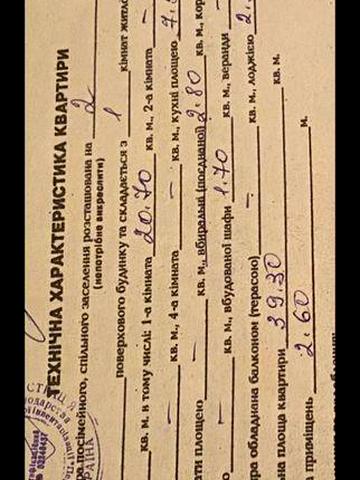 ТЕХНІЧНА ХАРАКТЕРИСТИКА КВАРТИРИ
ра посімейного, спільного заселення розташована на 2
(непотрібне викреслити)
поверхового будинку та складається з 1 кімнат житло
кв. м. в тому числі: 1-а кімната 20.70 кв. м., 2-а кімната —
кв. м., 4-а кімната — кв. м., кухні площею 7.
ати площею — кв. м., вбиральні (поєднаної) 2.80 кв. м., кор
о — кв. м., вбудованої шафи 1.70 кв. м., веранди
ра обладнана балконом (терасою) — кв. м., лоджією 2.
на площа квартири 39.30 кв. м.
а приміщень 2.60 м.